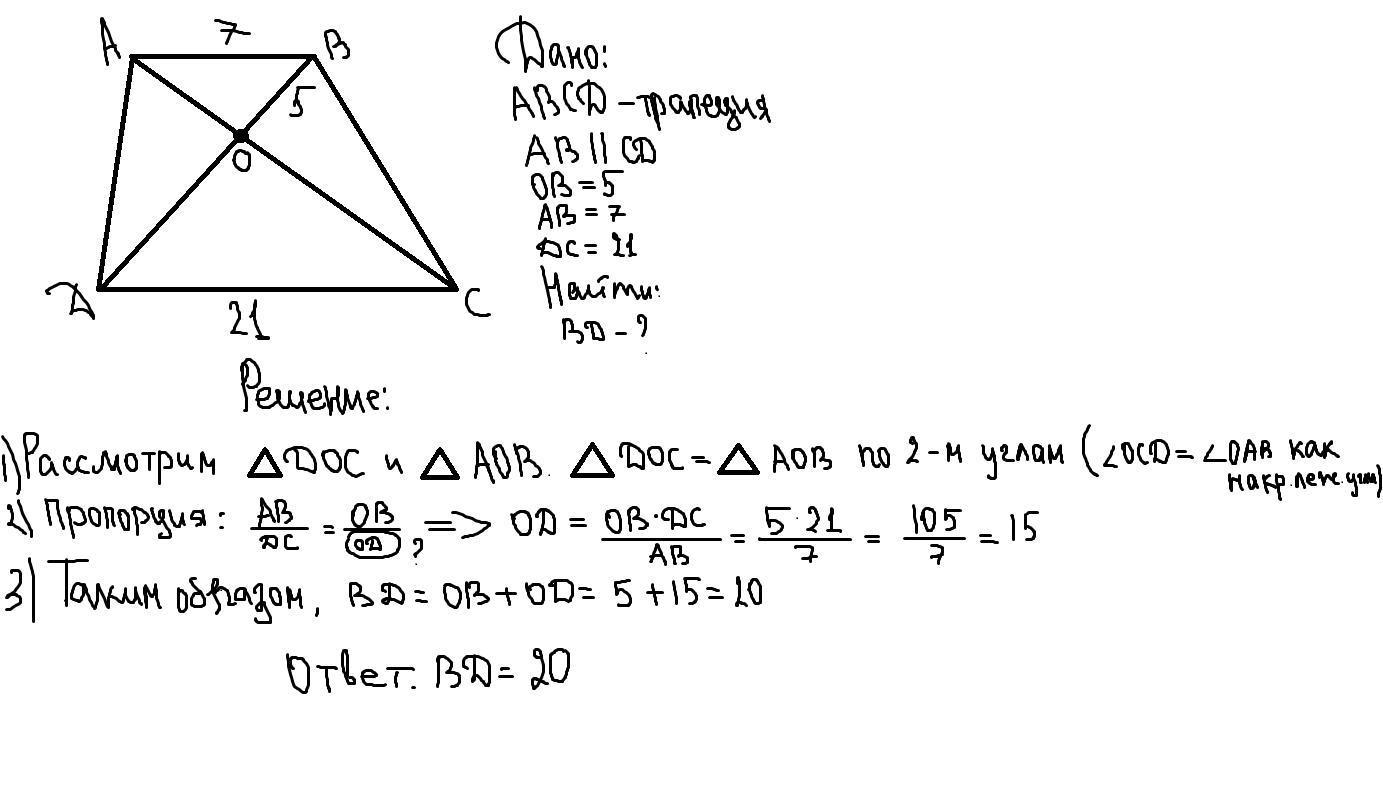 A 7 B
5
O
D C
21
Дано:
ABCD - трапеция
AB || CD
OB = 5
AB = 7
DC = 21
Найти:
BD - ?
Решение:
1) Рассмотрим △DOC и △AOB. △DOC = △AOB по 2-м углам (∠OCD = ∠OAB как накр.леж.угл)
2) Пропорция: AB/DC = OB/OD ? => OD = OB·DC/AB = 5·21/7 = 105/7 = 15
3) Таким образом, BD = OB + OD = 5 + 15 = 20
Ответ. BD = 20